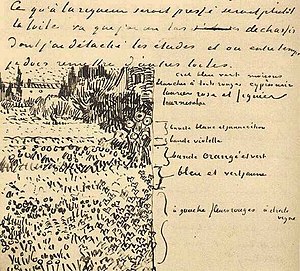 Ce qu'à la rigueur serait pressé serait plutôt
la toile vu que j'en ai tous les de chassis
dont j'ai détaché les études et où entretemps
je dois remettre d'autres toiles.
ciel bleu vert maisons
blanches à toits rouges cyprès vert
lauriers rose et figuier
tournesols
bande blanc et jaune citron
bande violette
bande orangé et vert
bleu et vert jaune
à gauche fleurs rouges à droite
vigne